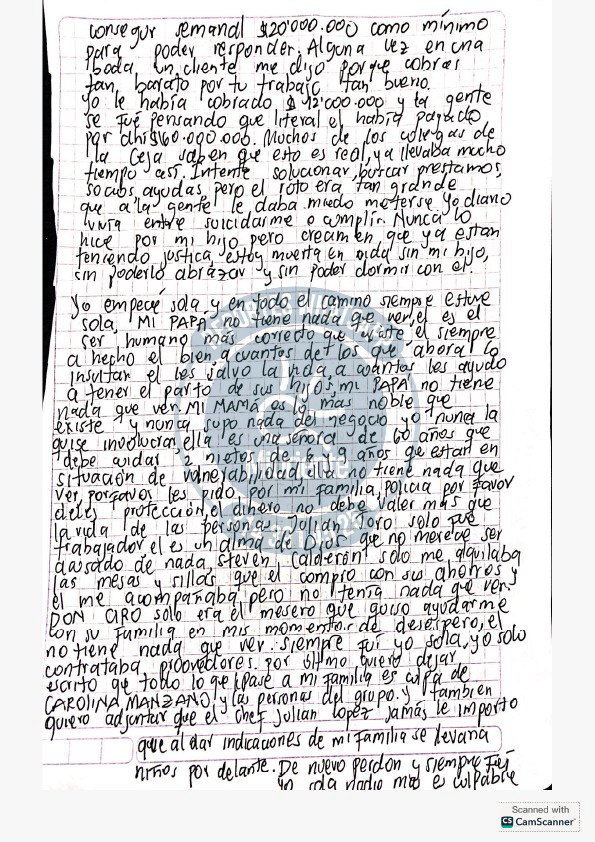 conseguir semanal $20'000.000 como mínimo
para poder responder. Alguna vez en una
boda, un cliente me dijo porque cobras
tan barato por tu trabajo tan bueno.
Yo le había cobrado $12'000.000 y la gente
se fue pensando que literal el había pagado
por ahi $60.000.000. Muchos de los colegas de
la Ceja saben que esto es real, ya llevaba mucho
tiempo así. Intente solucionar, buscar prestamos,
socios, ayudas, pero el roto era tan grande
que a la gente le daba miedo meterse yo diario
vivía entre suicidarme o cumplir. Nunca lo
hice por mi hijo pero creamen que ya estan
teniendo justicia, estoy muerta en vida sin mi hijo,
sin poderlo abrazar y sin poder dormir con el.
Yo empecé sola, y en todo el camino siempre estuve
sola, MI PAPÁ no tiene nada que ver, el es el
ser humano más correcto que existe, el siempre
a hecho el bien, a cuantos de los que ahora lo
insultan el les salvo la vida, a cuantos les ayudo
a tener el parto de sus hijos, mi PAPÁ no tiene
nada que ver. MI MAMÁ es lo más noble que
existe y nunca supo nada del negocio yo nunca la
quise involucrar, ella es una señora de 60 años que
debe cuidar 2 nietos de 6 y 9 años que estan en
situación de vulnerabilidad, ella no tiene nada que
ver, porfavor les pido por mi familia, policia por favor
deles protección, el dinero no debe valer más que
la vida de las personas. Julian Toro solo fue
trabajador el es un alma de Dios que no merece ser
causado de nada, steven Calderón solo me alquilaba
las mesas y sillas que el compro con sus ahorros y
el me acompañaba, pero no tenía nada que ver y
DON CIRO solo era el mesero que quiso ayudarme
con su familia en mis momentos de desespero, el
no tiene nada que ver. siempre fuí yo sola, yo solo
contrataba proovedores. por último quiero dejar
escrito que todo lo que pase a mi familia es culpa de
CAROLINA MANZANO y las personas del grupo. y tambien
quiero adjuntar que el chef Julian Lopez Jamás le importo
que al dar indicaciones de mi familia se llevaria
niños por delante. De nuevo perdón y siempre fuí
yo sola nadie mas es culpable
Scanned with
CS CamScanner